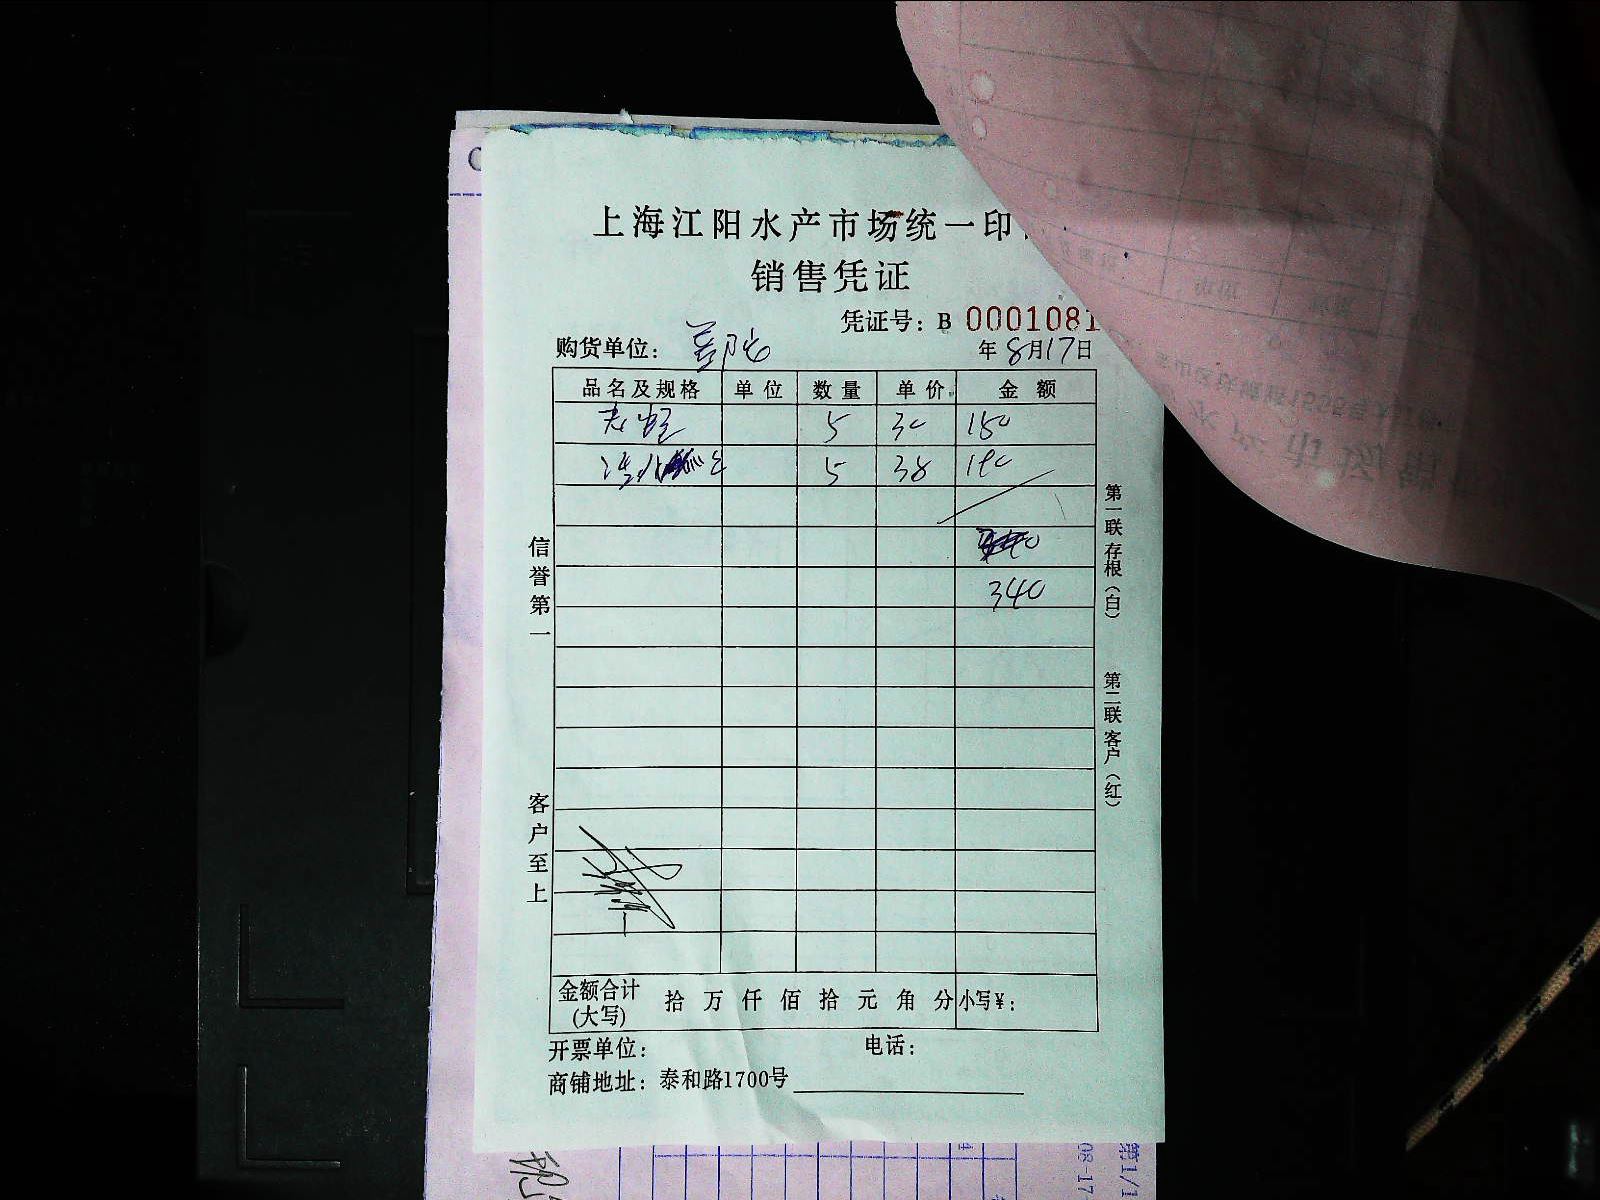 上海江阳水产市场统一印
销售凭证
凭证号：B 0001081
购货单位： 年8月17日
品名及规格 单位 数量 单价 金额
5 30 150
5 38 190
340
信誉第一
客户至上
第一联存根（白）
第二联客户（红）
金额合计(大写) 拾 万 仟 佰 拾 元 角 分 小写¥：
开票单位： 电话：
商铺地址：泰和路1700号
08-17
第1/1